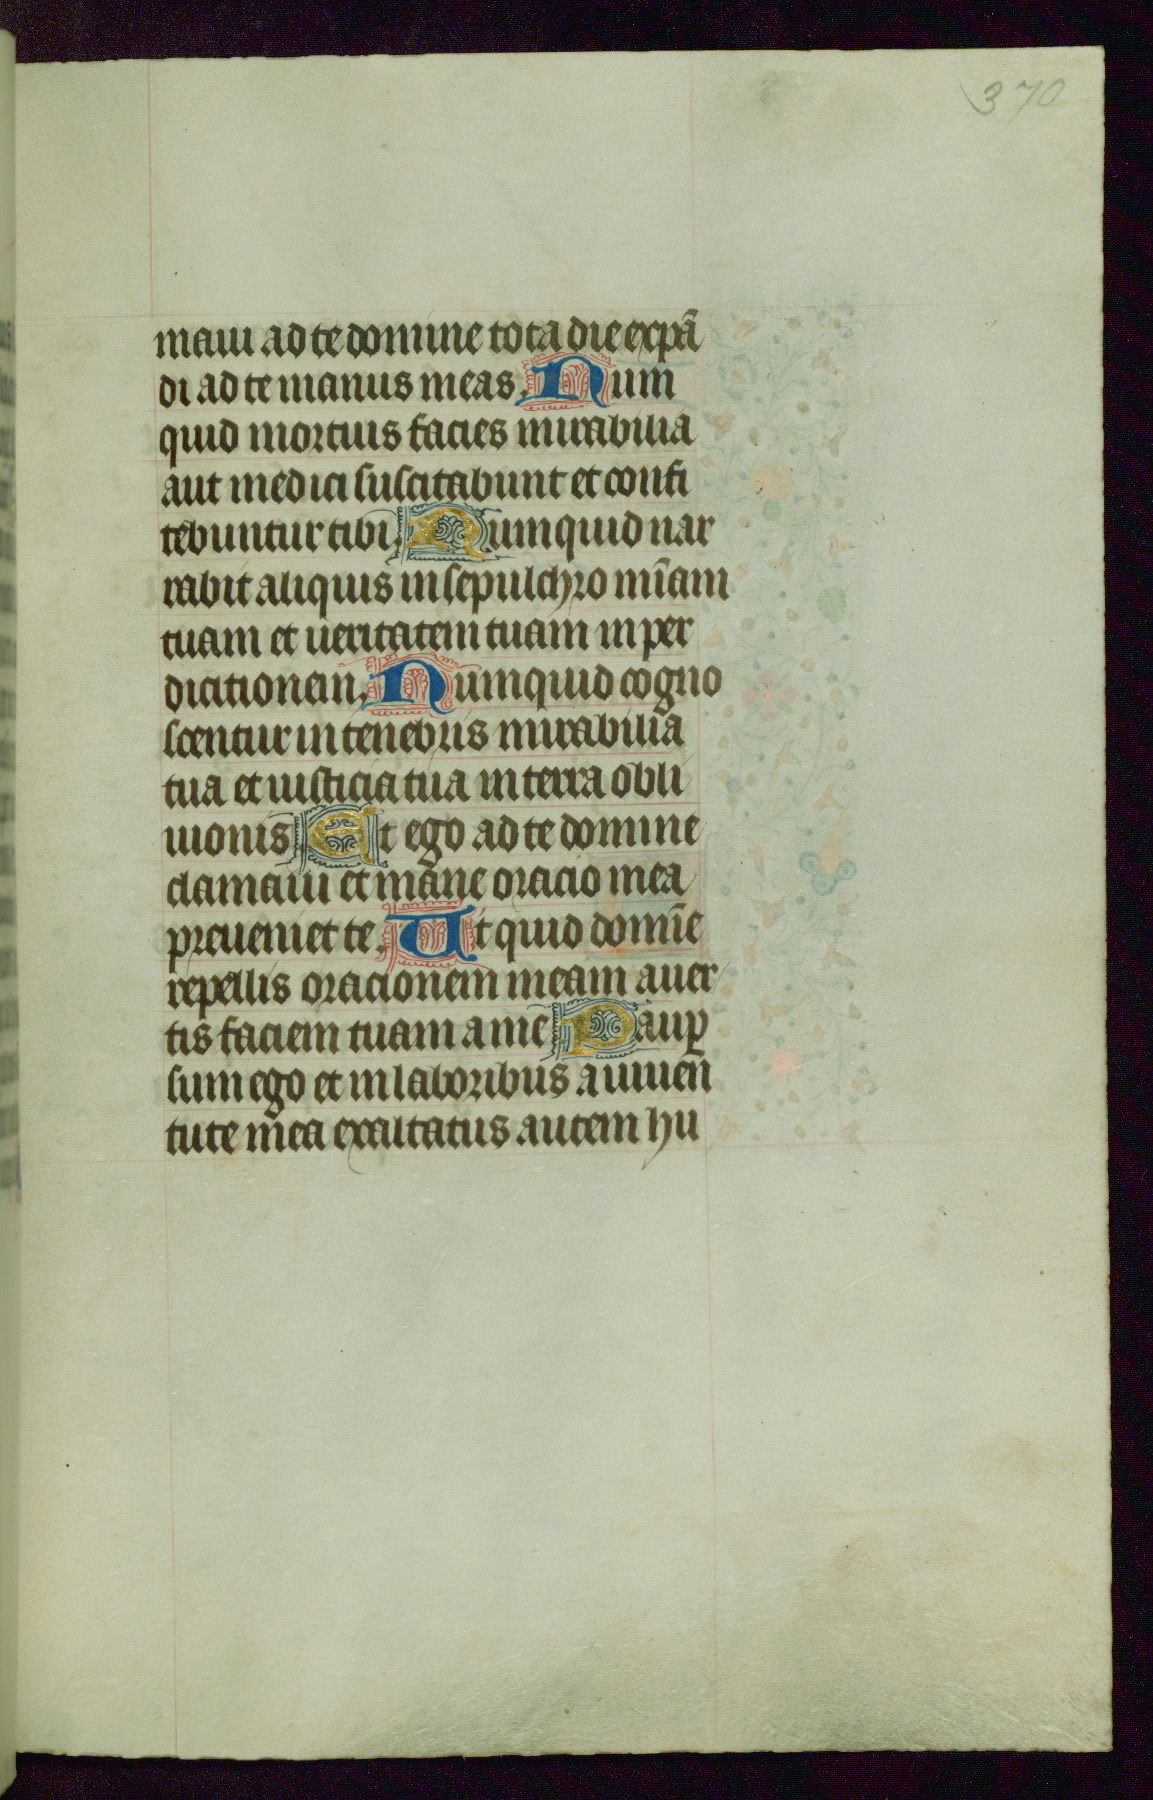 370
maui ad te domine tota die expā
di ad te manus meas. Num
quid mortuis facies mirabilia
aut medici suscitabunt et confi
tebuntur tibi. Numquid nar
rabit aliquis in sepulchro mīam
tuam et ueritatem tuam in per
dicitionem. Numquid cogno
scentur in tenebris mirabilia
tua et iusticia tua in terra obli
uionis Et ego ad te domine
clamaui et mane oracio mea
preueniet te. Ut quid domīe
repellis oracionem meam auer
tis faciem tuam a me Paup̄
sum ego et in laboribus a iuuen
tute mea exaltatus autem hu